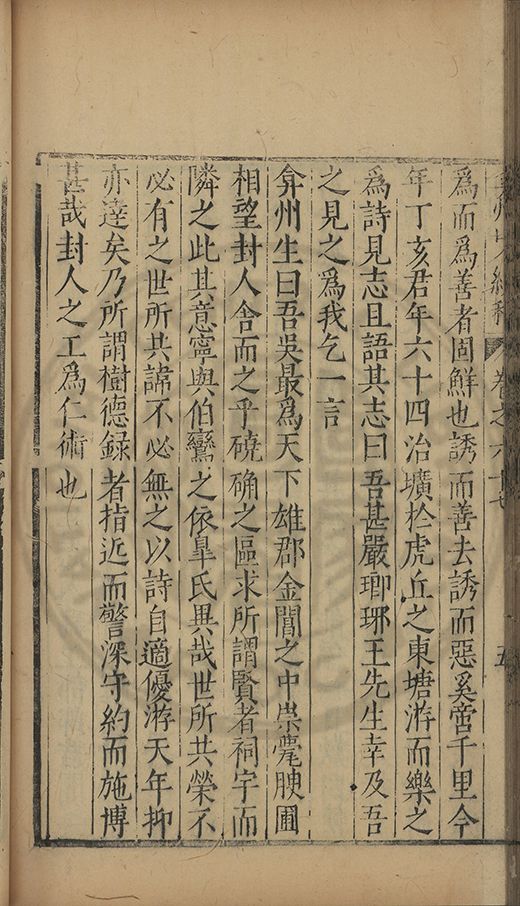 弇州 續稿 卷之六十七 五
爲而爲善者固鮮也誘而善去誘而惡奚啻千里今
年丁亥君年六十四治壙於虎丘之東塘游而樂之
爲詩見志且語其志曰吾甚嚴瑘琊王先生幸及吾
之見之爲我乞一言
弇州生曰吾吳最爲天下雄郡金閶之中崇甍腴圃
相望封人舍而之乎磽确之區求所謂賢者祠宇而
隣之此其意寧與伯鸞之依臯氏異哉世所共榮不
必有之世所共諱不必無之以詩自適優游天年抑
亦達矣乃所謂樹德録者指近而警深守約而施博
甚哉封人之工爲仁術也